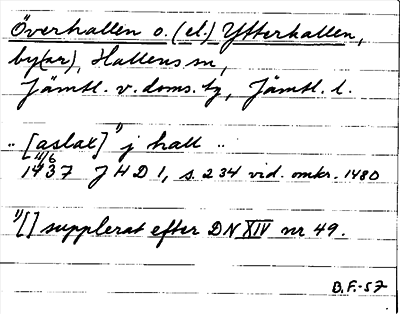 Överhallen o. (el.) Ytterhallen,
by(ar), Hallens sn,
Jämtl. v. doms. tg, Jämtl. l.
.. [aslak]¹⁾ j hall ..
11/6
1437 JHD 1, s. 234 vid. omkr. 1480
¹⁾[] supplerat efter DN XIV nr 49.
B.F.-57